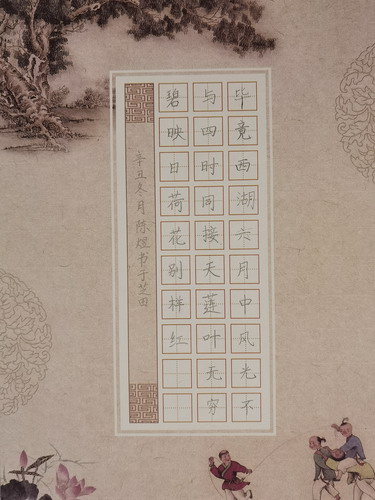 毕竟西湖六月中风光不
与四时同接天莲叶无穷
碧映日荷花别样红
辛丑冬月陈煜书于芝田